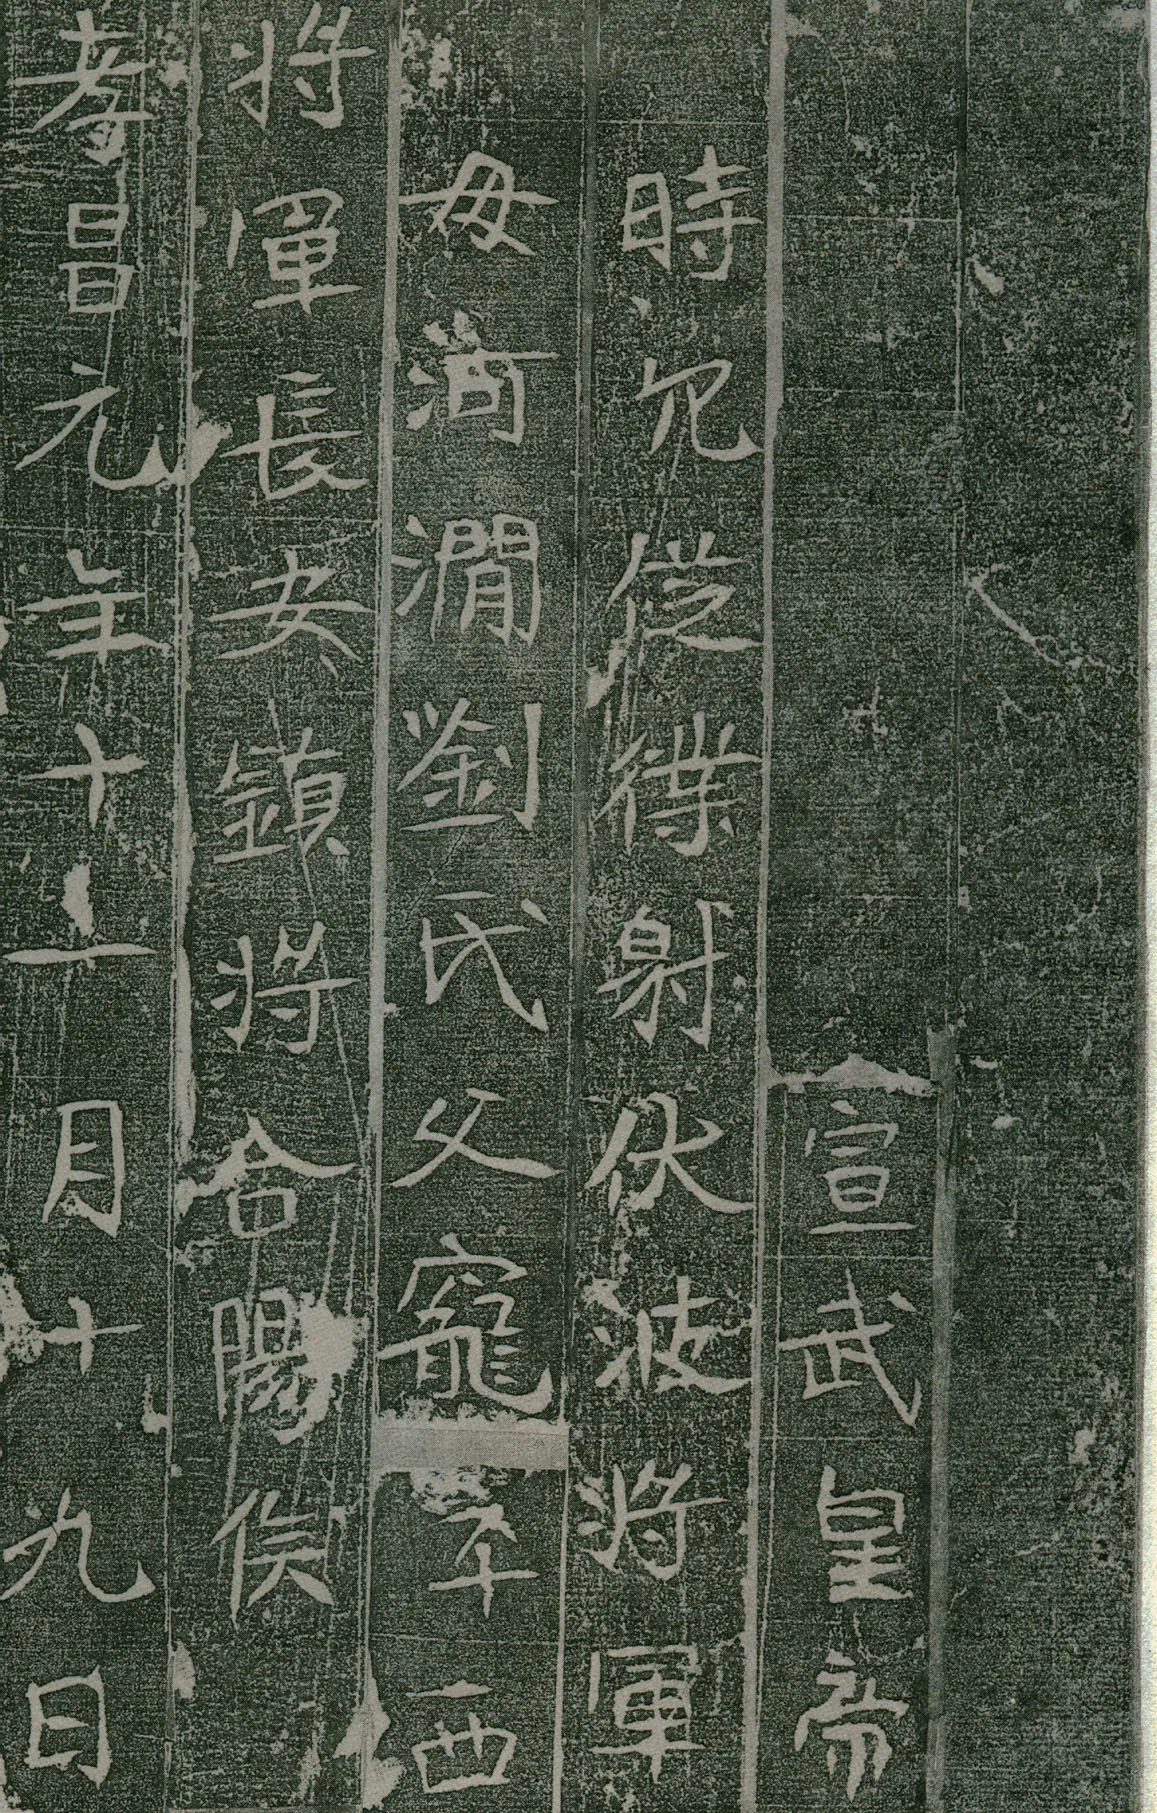 宣武皇帝
時冗從僕射伏波將軍
母河澗劉氏父寵平西
將軍長安鎮將合陽侯
孝昌元年十一月十九日